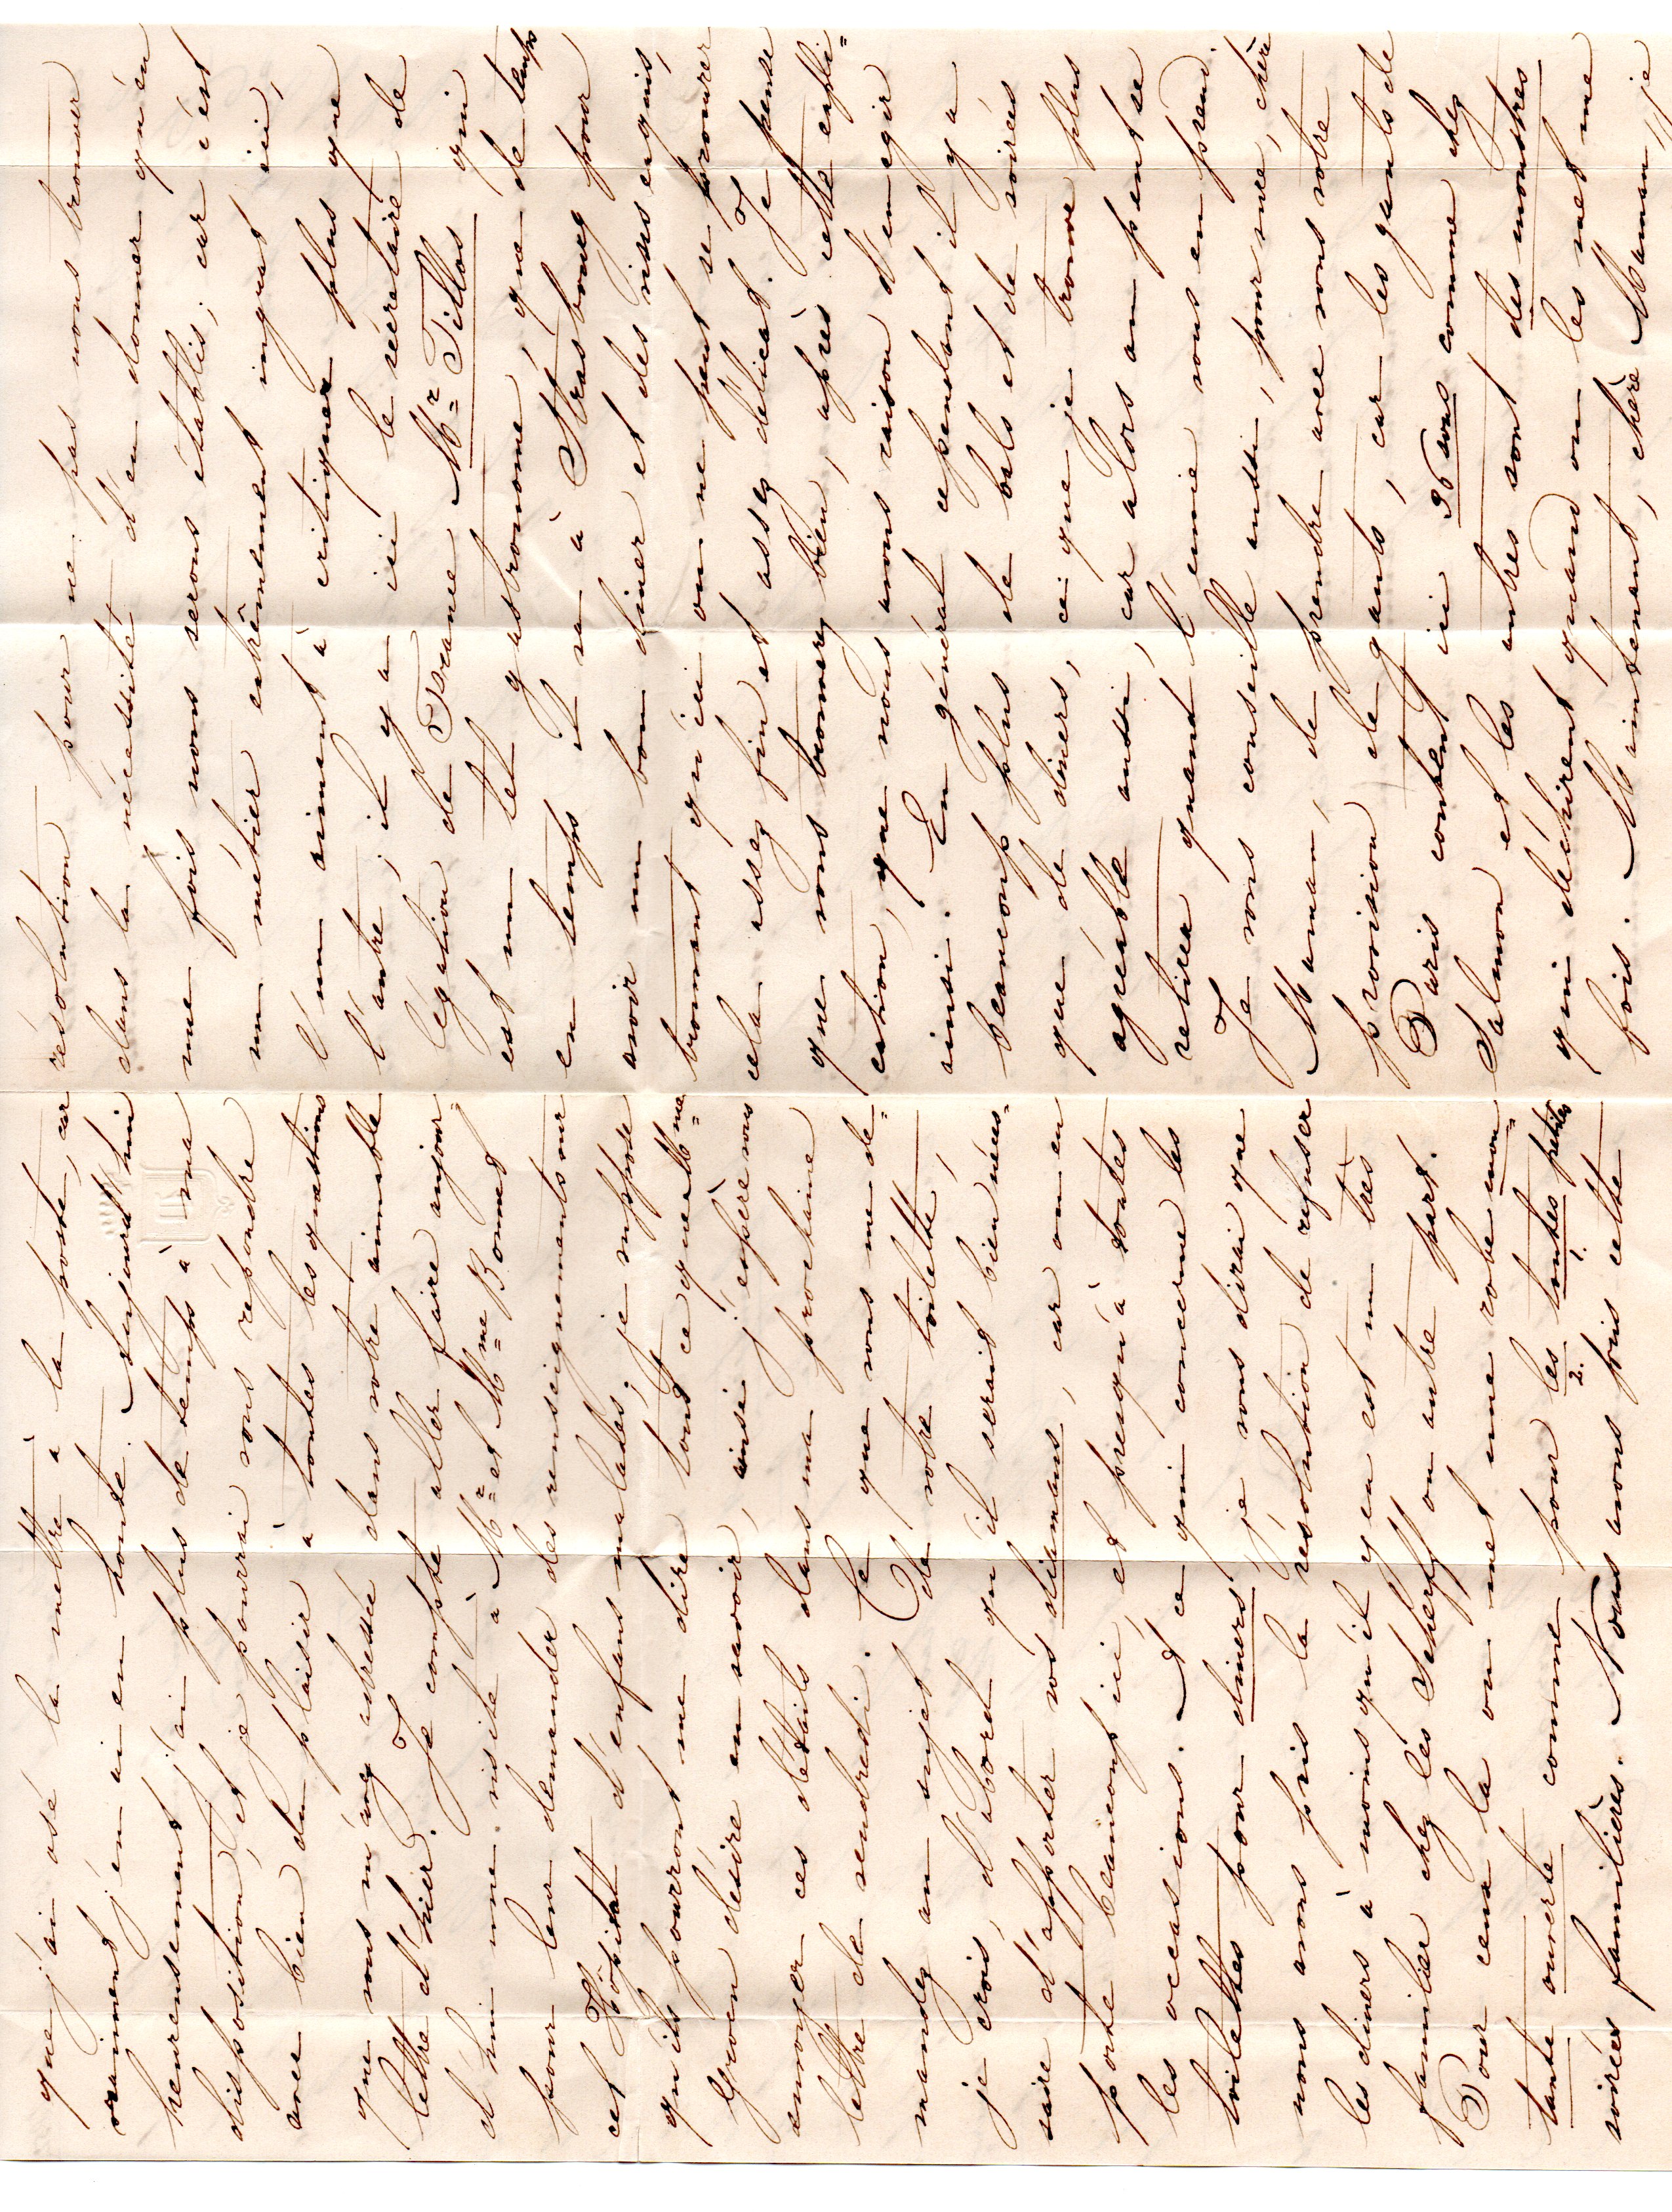 que j'ai osé la mettre à la poste, car
vraiment j'en ai en honte. Aujourd'hui
heureusement j'ai plus de temps à ma
disposition, et je pourrai vous répondre
avec bien du plaisir à toutes les questions
que vous m'avez adressée dans votre aimable
lettre d'hier. Je compte aller faire aujour=
d'hui une visite à Mr et Mme Bonnet
pour leur demander des renseignements sur
cet Hôpital d'enfans malades; je suppose
qu'ils pourront me dire tout ce que Mme
Groen désire en savoir, ainsi j'espère vous
envoyer ces détails dans ma prochaine
lettre de vendredi. Ce que vous me de=
mandez au sujet de votre toilette,
je crois d'abord qu'il serait bien néces=
saire d'apporter vos diamans, car on en
porte beaucoup ici et presqu'à toutes
les occasions. A ce qui concerne les
toilettes pour diners je vous dirai que
nous avons pris la résolution de refuser
les diners à moins qu'il y en est un très
familier chez les Scherff ou autre part.
Pour ceux la on met une robe mon=
tante ouverte comme pour les toutes petites
2. 1.
soirées familières. Nous avons pris cette
résolution pour ne pas nous trouver
dans la nécessité d'en donner qu'en
une fois nous serons établis; car c'est
un métier extrêmement ingrat ici,
l'un aiment à critiquer plus que
l'autre; il y a ici le secrétaire de
légation de France Mr Tillos qui
est un tel gastronome, que de temps
en temps il va à Strasbourg pour
avoir un bon diner et des vins exquis,
trouvant qu'ici on ne peut se procurer
cela assez fin et assez délicat. Je pense
que vous trouverez bien, après cette expli=
cation, que nous avons raison d'en agir
ainsi. En général cependant il y a
beaucoup plus de bals et de soirées
que de diners, ce que je trouve plus
agréable aussi, car alors on peut se
retirer quand l'envie vous en prend.
Je vous conseille aussi, pour sure, chère
Maman, de prendre avec vous votre
provision de gants, car les gants de
Paris coutent ici 36 sous comme chez
Salmon et les autres sont des monstres
qui déchirent quand on les met une
fois. Maintenant, chère Maman, je